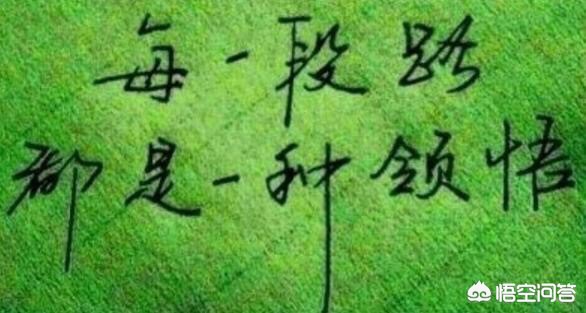 每一段路
都是一种领悟
悟空问答